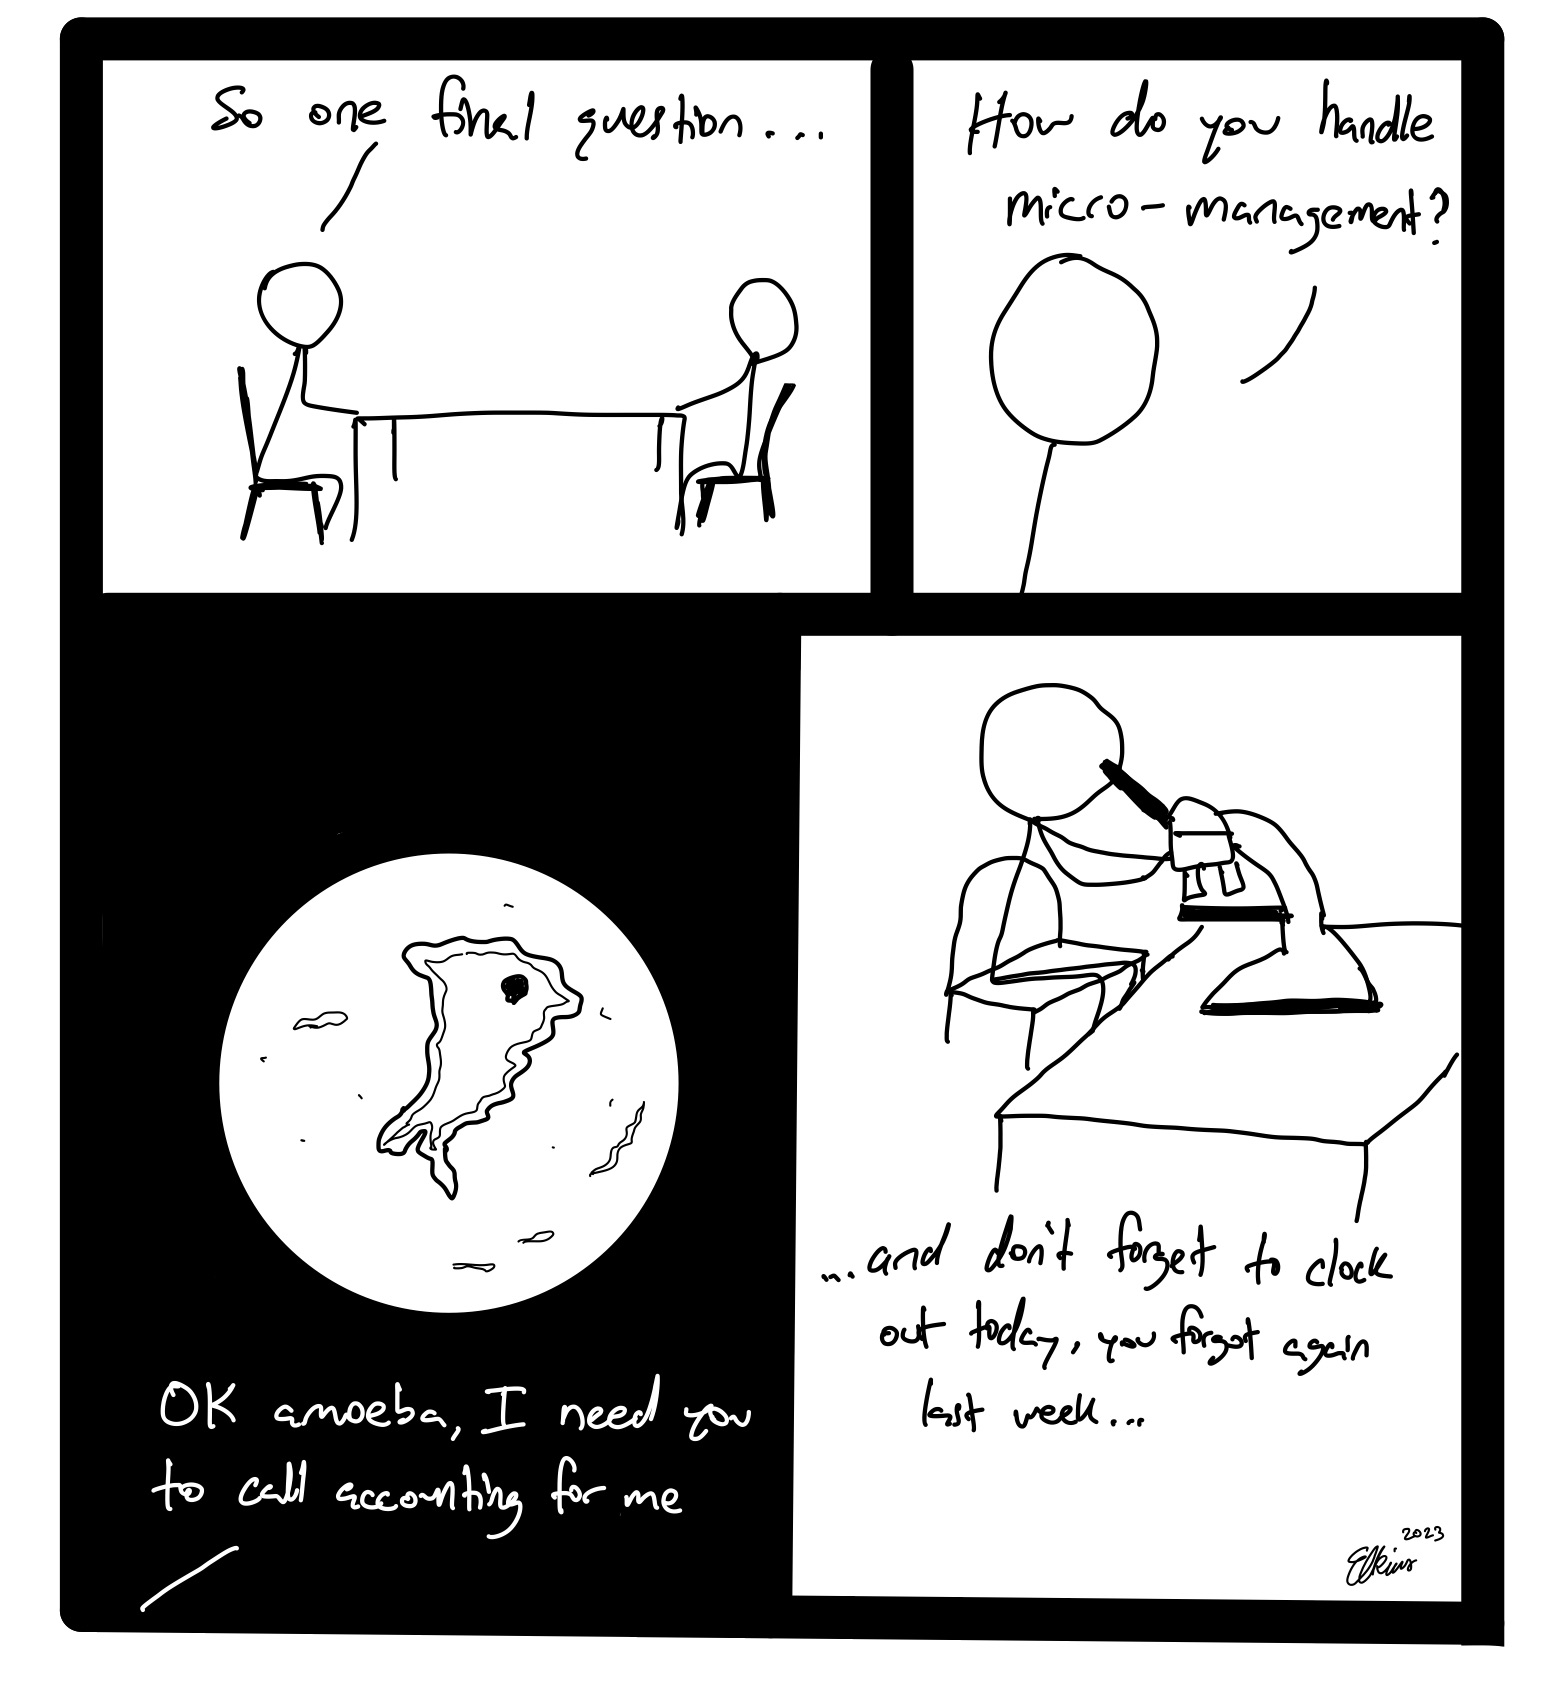 So one final question....
How do you handle
micro-management?
OK amoeba, I need you
to call accounting for me
...and don't forget to clock
out today, you forgot again
last week...
2023
Elkins